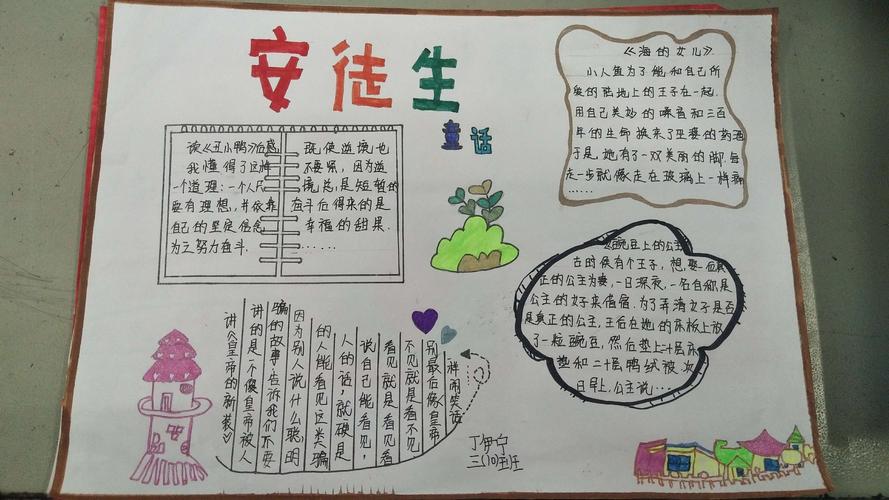 安徒生
童话
读《丑小鸭》后感
我懂得了这样
一个道理：一个人只
要有理想，并依靠
自己的坚定信念
为之努力奋斗.
既使逆境也
不要紧，因为逆
境总是短暂的
奋斗后得来的是
幸福的甜果.
……
《海的女儿》
小人鱼为了能和自己所
爱的陆地上的王子在一起.
用自己美妙的嗓音和三百
年的生命换来了巫婆的药酒
于是,她有了一双美丽的脚.每
走一步就像走在玻璃上一样
……
《豌豆上的公主》
古时候有个王子，想娶一位真
正的公主为妻，一日深夜，一名自称是
公主的女子来借宿.为了弄清女子是否
是真正的公主，王后在她的床板上放
了一粒豌豆，然后垫上二十层床
垫和二十层鸭绒被.次
日早上,公主说…
讲《皇帝的新装》
讲的是一个傻皇帝被人
骗的故事告诉我们不要
因为别人说什么聪明
的人能看见这类骗
人的话,就硬是
说自己能看见,
看见就是看看
不见就是看不见
别最后像皇帝
一样闹笑话
丁伊宁
三(10)班
安